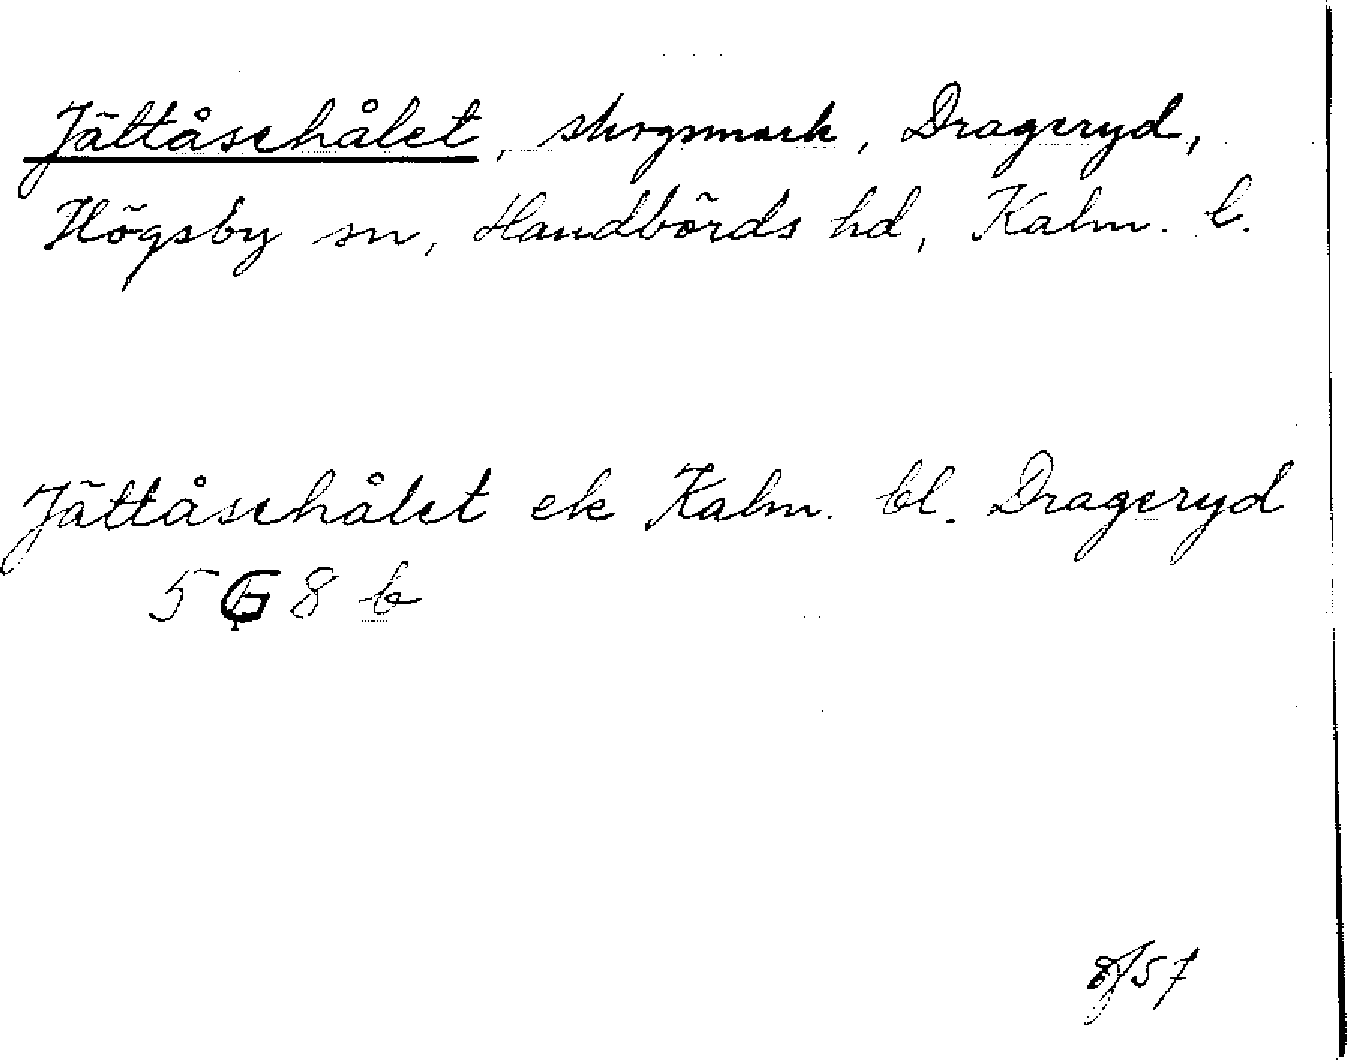 Jättåsehålet, skogsmark, Drageryd,
Högsby sn, Handbörds hd, Kalm. l.
Jättåsehålet ek Kalm. bl. Drageryd
5 G 8 b
57